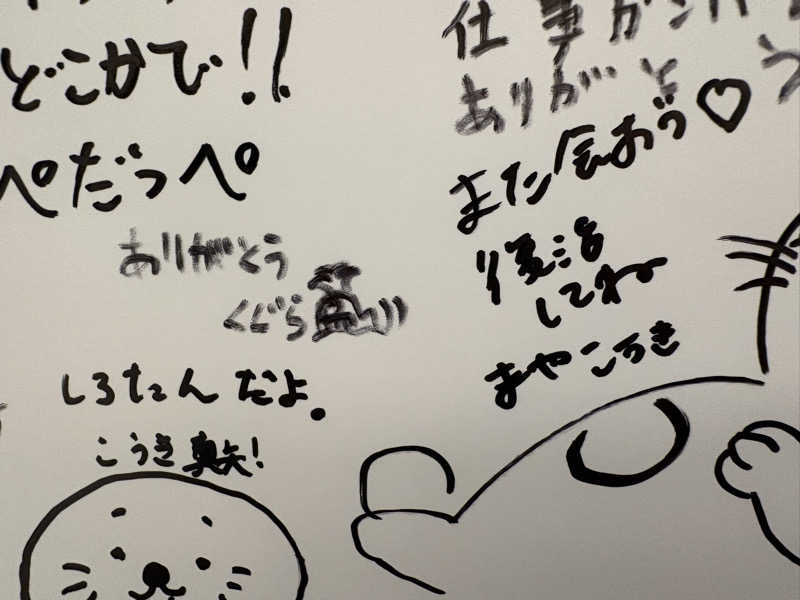 どこかで!!
ぺだっぺ
ありがとう
くじら
しろたん だよ。
こうき 真矢!
仕事が
ありがとう
また会おう♡
復活
してね
まやこうき